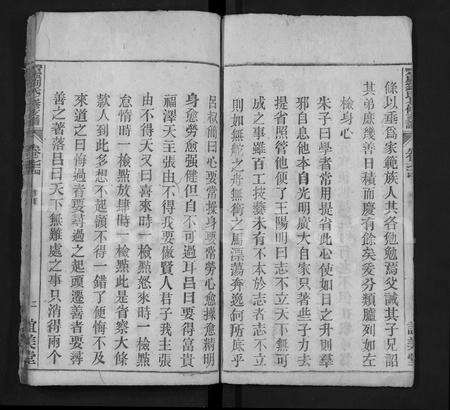 條以垂爲家範族人其各勉勉焉父誡其子兄詔
其弟庶幾善日積而慶有餘矣爰分類臚列如左
檢身心
朱子曰學者常用提省此心使如日之升則羣
邪自息他本自光明廣大自家只著些子力去
提省照管他便了王陽明曰志不立天下無可
成之事雖百工技藝未有不本於志者志不立
則如無舵之舟無銜之馬漂蕩奔逸何所底乎
呂叔簡曰心要常操身要常勞心愈操愈精明
身愈勞愈強健但自不可過耳呂曰要得富貴
福澤天主張由不得我要做賢人君子我主張
由不得天又曰喜來時一檢點怒來時一檢點
怠惰時一檢點放肆時一檢點此是省察大條
款人到此多想不起顧不得一錯了便悔不及
來道之曰悔過者要尋過之起頭遷善者要尋
善之著落呂曰天下無難處之事只消得兩个
誼美堂